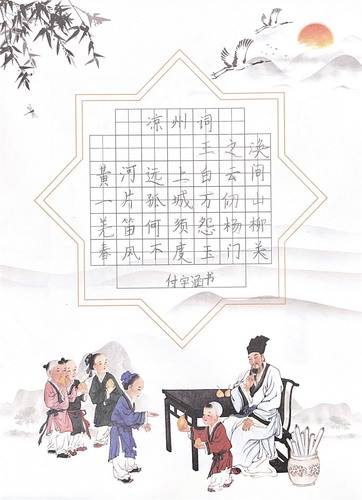 凉州词
王之涣
黄河远上白云间
一片孤城万仞山
羌笛何须怨杨柳
春风不度玉门关
付宇涵书